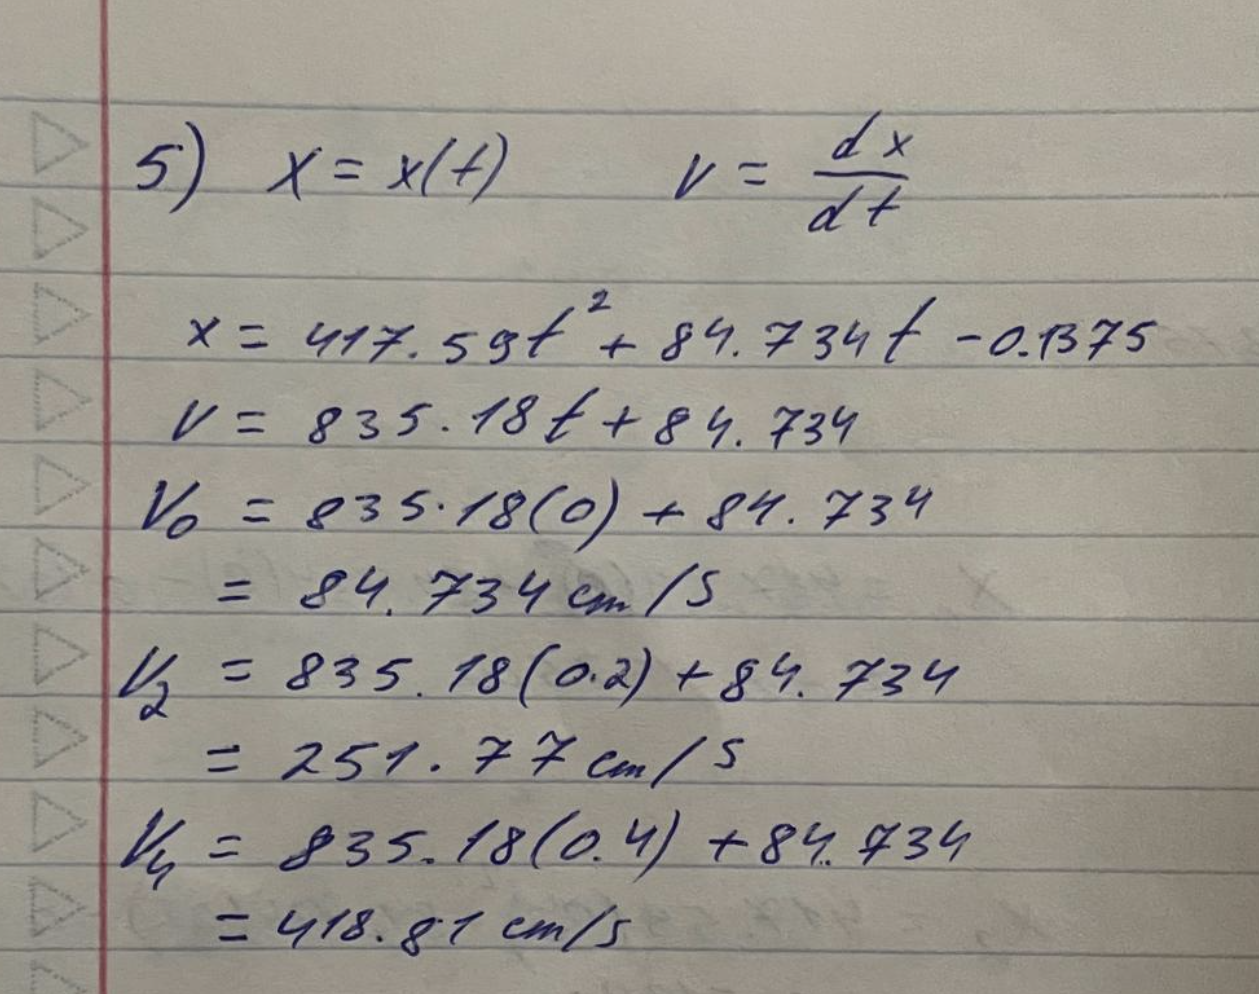 5) x = x(t) v = dx/dt
x = 417.59t² + 84.734t - 0.1375
v = 835.18t + 84.734
V₀ = 835.18(0) + 84.734
= 84.734 cm/s
V₂ = 835.18(0.2) + 84.734
= 251.77 cm/s
V₄ = 835.18(0.4) + 84.734
= 418.81 cm/s